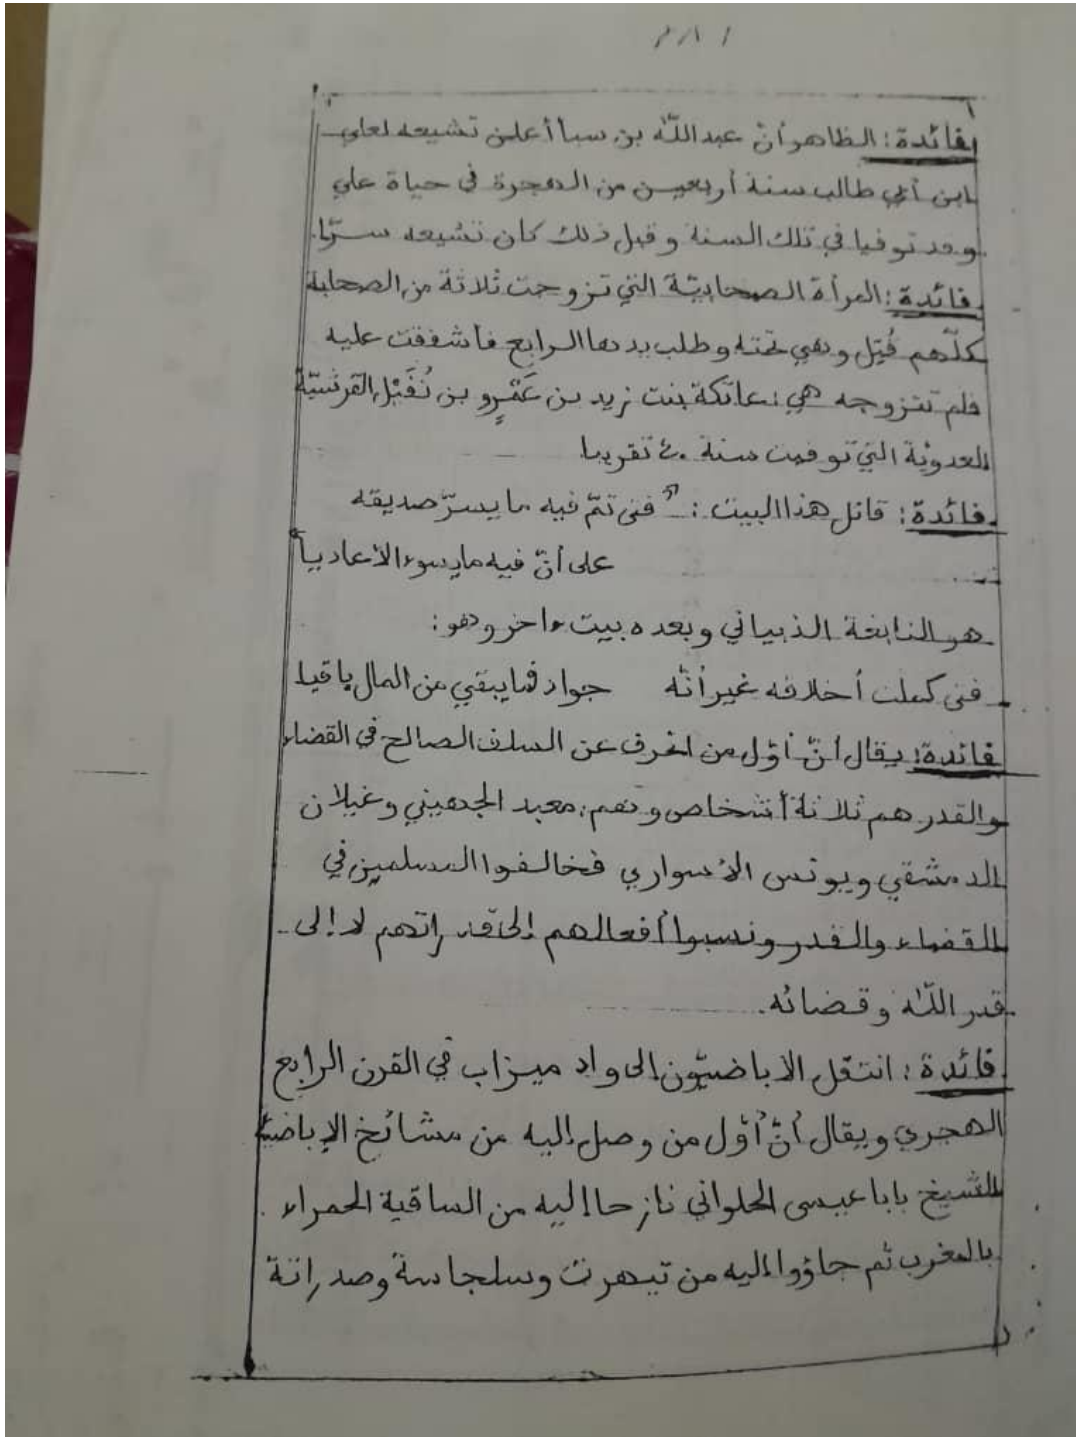 فائدة: الظاهر أنّ عبد اللّه بن سبأ أعلن تشيعه لعلي
ابن أبي طالب سنة أربعين من الهجرة في حياة علي
وقد توفيا في تلك السنة وقبل ذلك كان تشيعه سرّا.
فائدة: المرأة الصحابيّة التي تزوجت ثلاثة من الصحابة
كلّهم قُتِل وهي تحته وطلب يدها الرابع فأشفقت عليه
فلم تتزوجه هي: عاتكة بنت زيد بن عَمْرٍو بن نُفَيْل القرشيّة
العدويّة التي توفيت سنة ٤٠ تقريبا
فائدة: قائل هذا البيت: "فتى تمّ فيه ما يسرّ صديقه
على أنّ فيه ما يسوء الأعاديا"
هو النابغة الذبياني وبعده بيت ءاخر وهو:
فتى كملت أخلاقه غير أنّه جواد فما يبقي من المال باقيا
فائدة: يقال أنّ أوّل من انحرف عن السلف الصالح في القضاء
والقدر هم ثلاثة أشخاص وهم: معبد الجهيني وغيلان
الدمشقي ويونس الأسواري فخالفوا المسلمين في
القضاء والقدر ونسبوا أفعالهم إلى قدراتهم لا إلى
قدر اللّه وقضائه.
فائدة: انتقل الاباضيّون إلى واد ميزاب في القرن الرابع
الهجري ويقال أنّ أوّل من وصل إليه من مشائخ الإباضية
الشيخ بابا عيسى الحلواني نازحا إليه من الساقية الحمراء
بالمغرب ثم جاؤوا إليه من تيهرت وسلجاسة وصدراتة